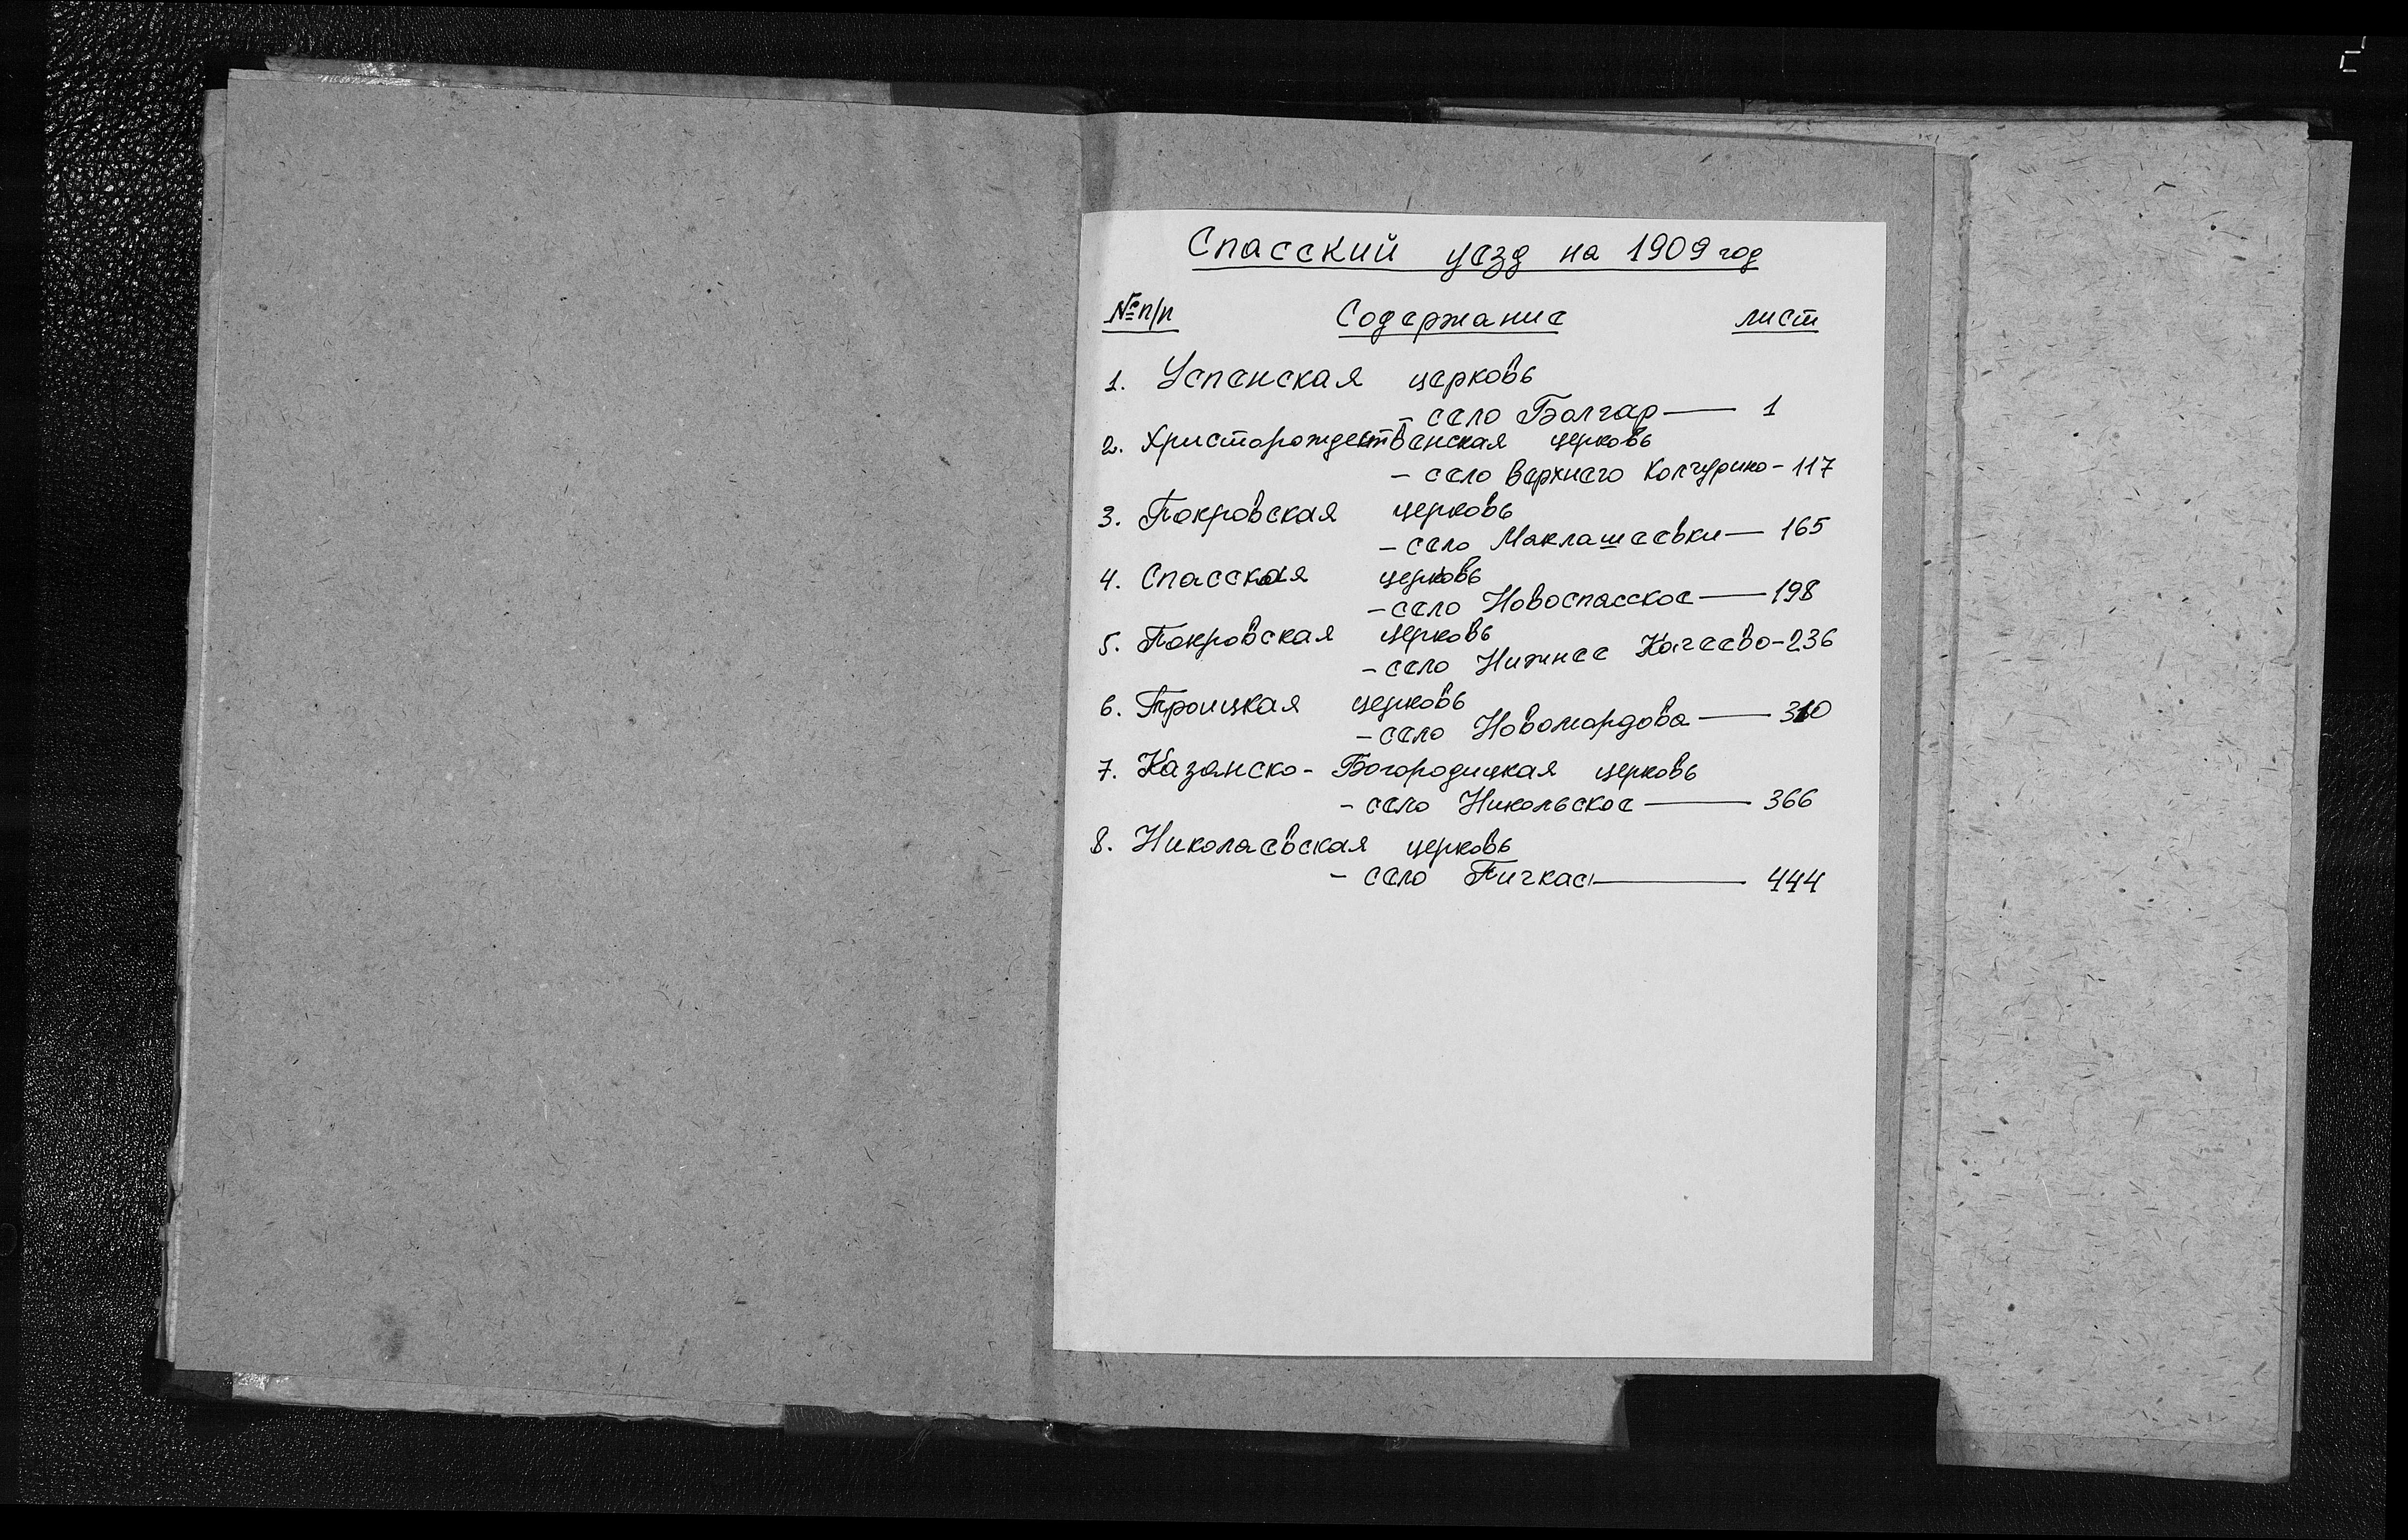 Спасский уезд на 1909 год
№ п/п Содержание лист
1. Успенская церковь
- село Болгар — 1
2. Христорождественская церковь
- село Верхнего Колчурино - 117
3. Покровская церковь
- село Маклашеевки — 165
4. Спасская церковь
- село Новоспасское — 198
5. Покровская церковь
- село Нижнее Качеево - 236
6. Троицкая церковь
- село Новомордова — 310
7. Казанско-Богородицкая церковь
- село Никольское — 366
8. Николаевская церковь
- село Пичкас — 444